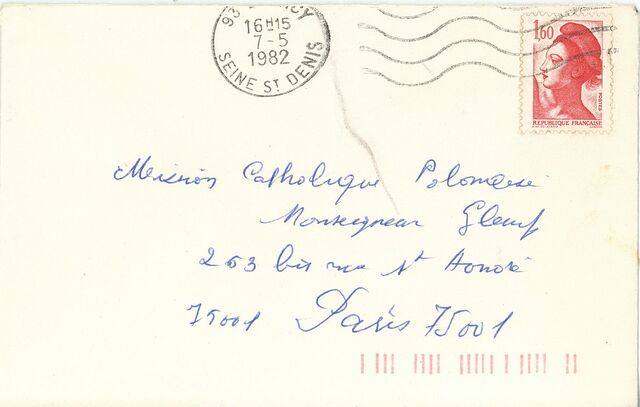 16H15
7-5
1982
SEINE ST DENIS
1,60
POSTES
REPUBLIQUE FRANÇAISE
Mission Catholique Polonaise
Monseigneur
263 bis rue St Honoré
75001 Paris 75001